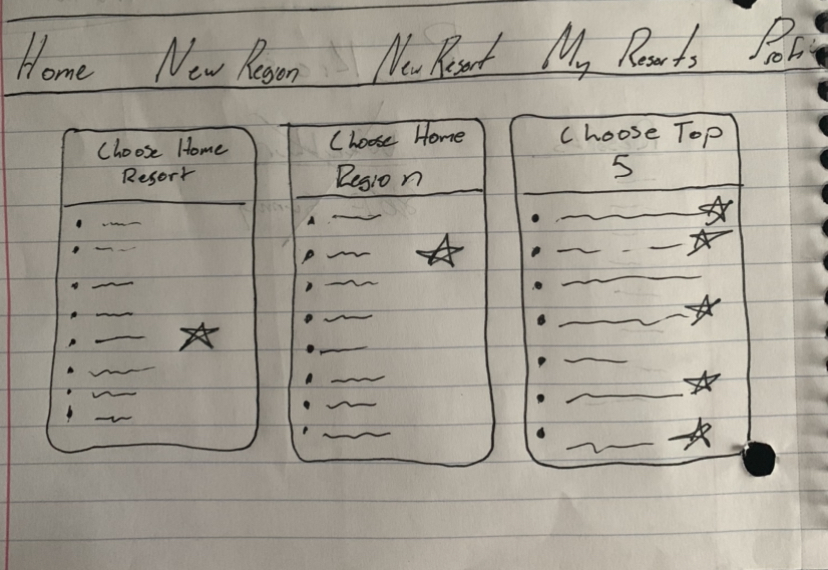 Home New Region New Resort My Resorts Profi
Choose Home
Resort
Choose Home
Region
Choose Top
5